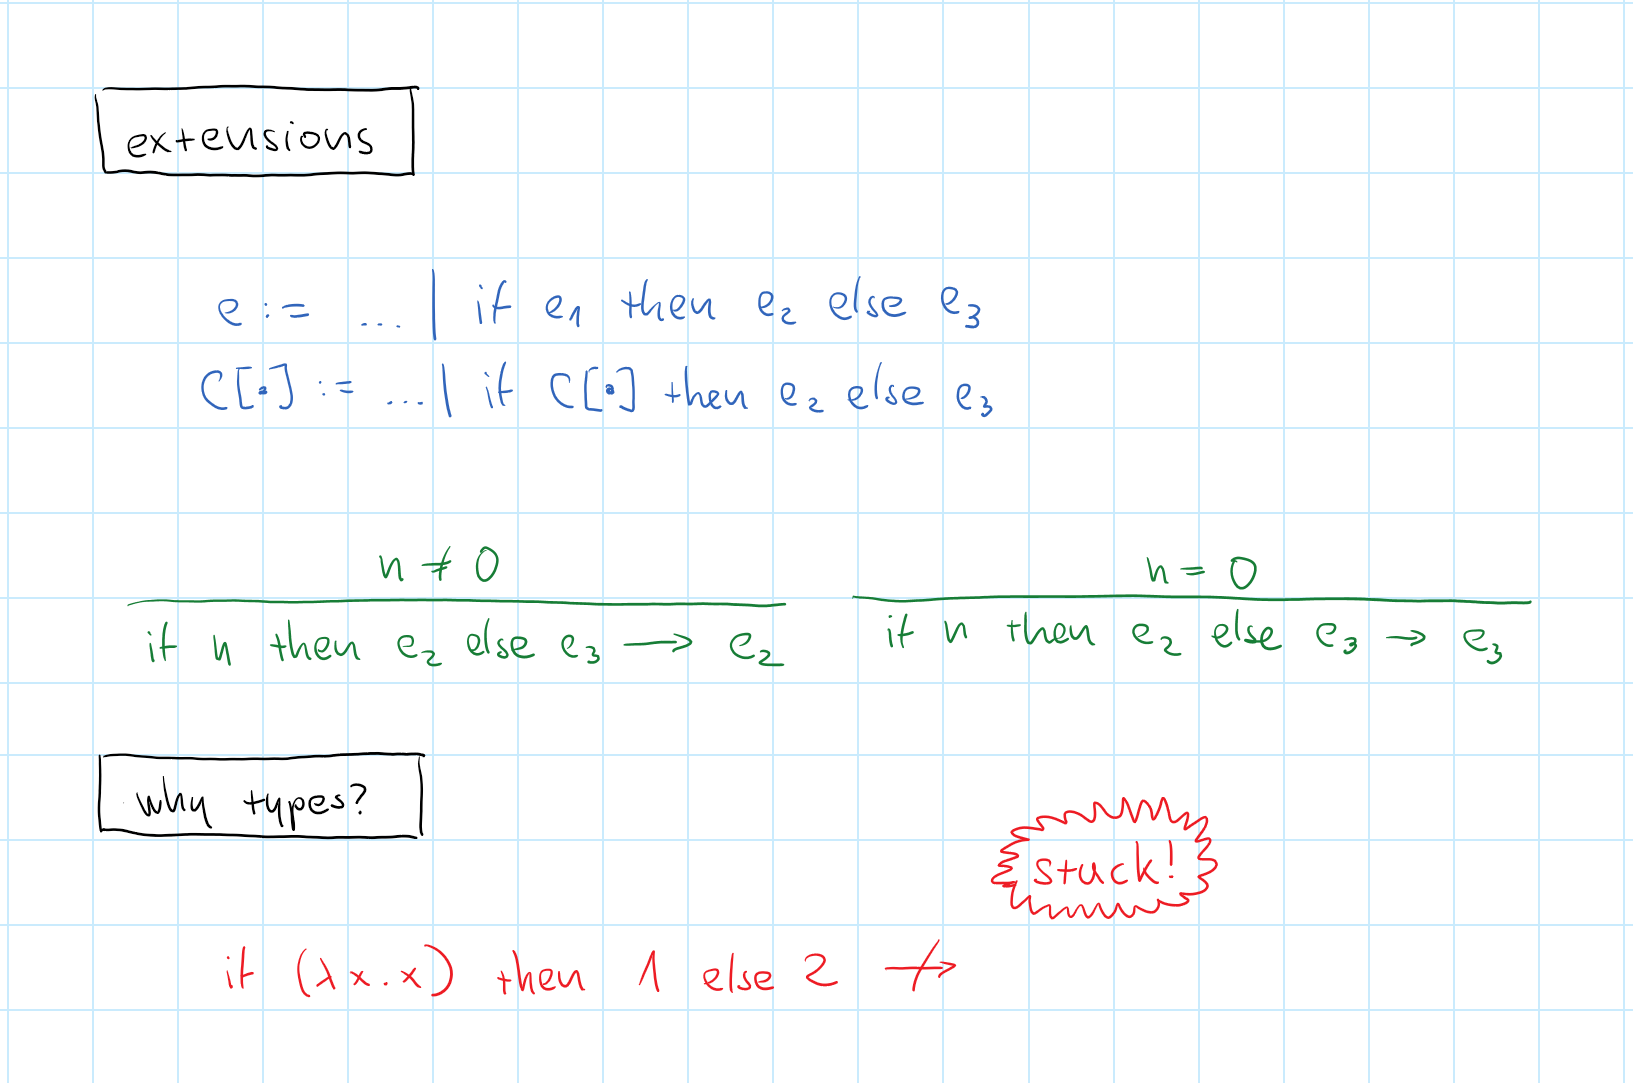 extensions
e := ... | if e₁ then e₂ else e₃
C[•] := ... | if C[•] then e₂ else e₃
n ≠ 0
n = 0
if n then e₂ else e₃ ⟶ e₂
if n then e₂ else e₃ → e₃
why types?
stuck!
if (λx.x) then 1 else 2 ↛